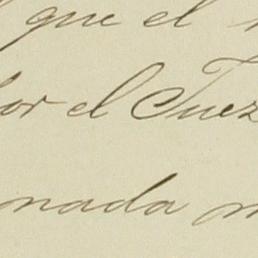 que el
por el Juez
nada